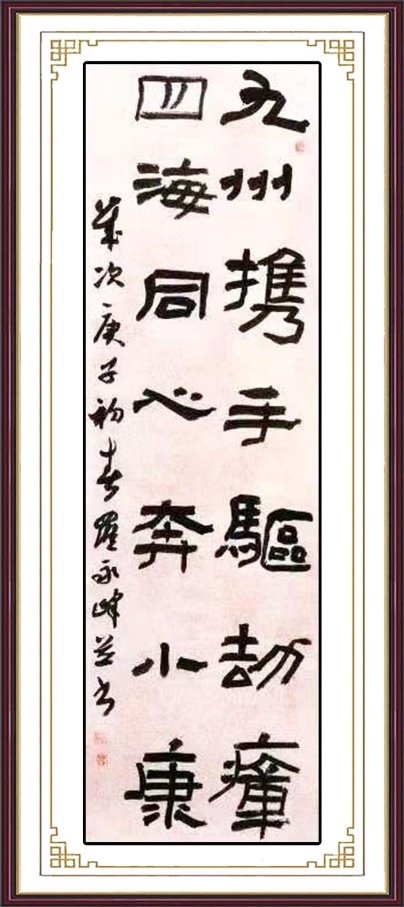 九州携手驅劫瘴
四海同心奔小康
歲次庚子初春羅永峰并书